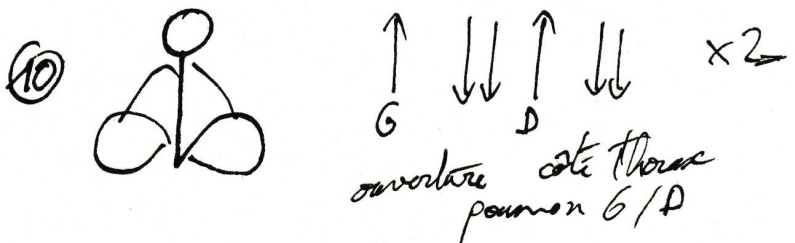 10
↑ ↓↓ ↑ ↓↓ x2
G D
ouverture côté Thorax
poumon G/D